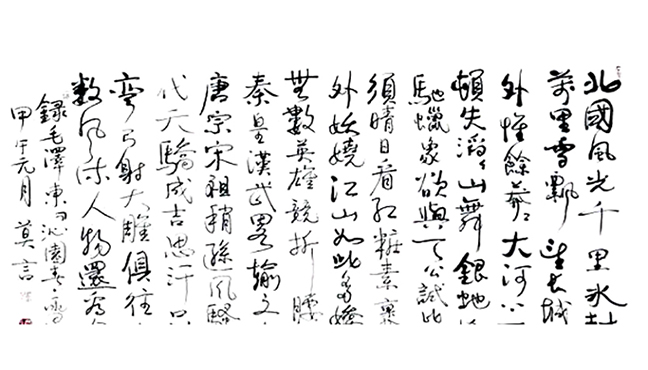 北國風光千里冰封
萬里雪飄望長城
外惟餘莽〻大河
頓失滔〻山舞銀蛇
馳蠟象欲與天公試比
須晴日看紅粧素裹
外妖嬈江山如此多嬌
無數英雄競折腰
秦皇漢武略輸文
唐宗宋祖稍遜風騷
代天驕成吉思汗只
彎弓射大雕俱往
數風流人物還看
錄毛澤東詞沁園春雪
甲午元月 莫言